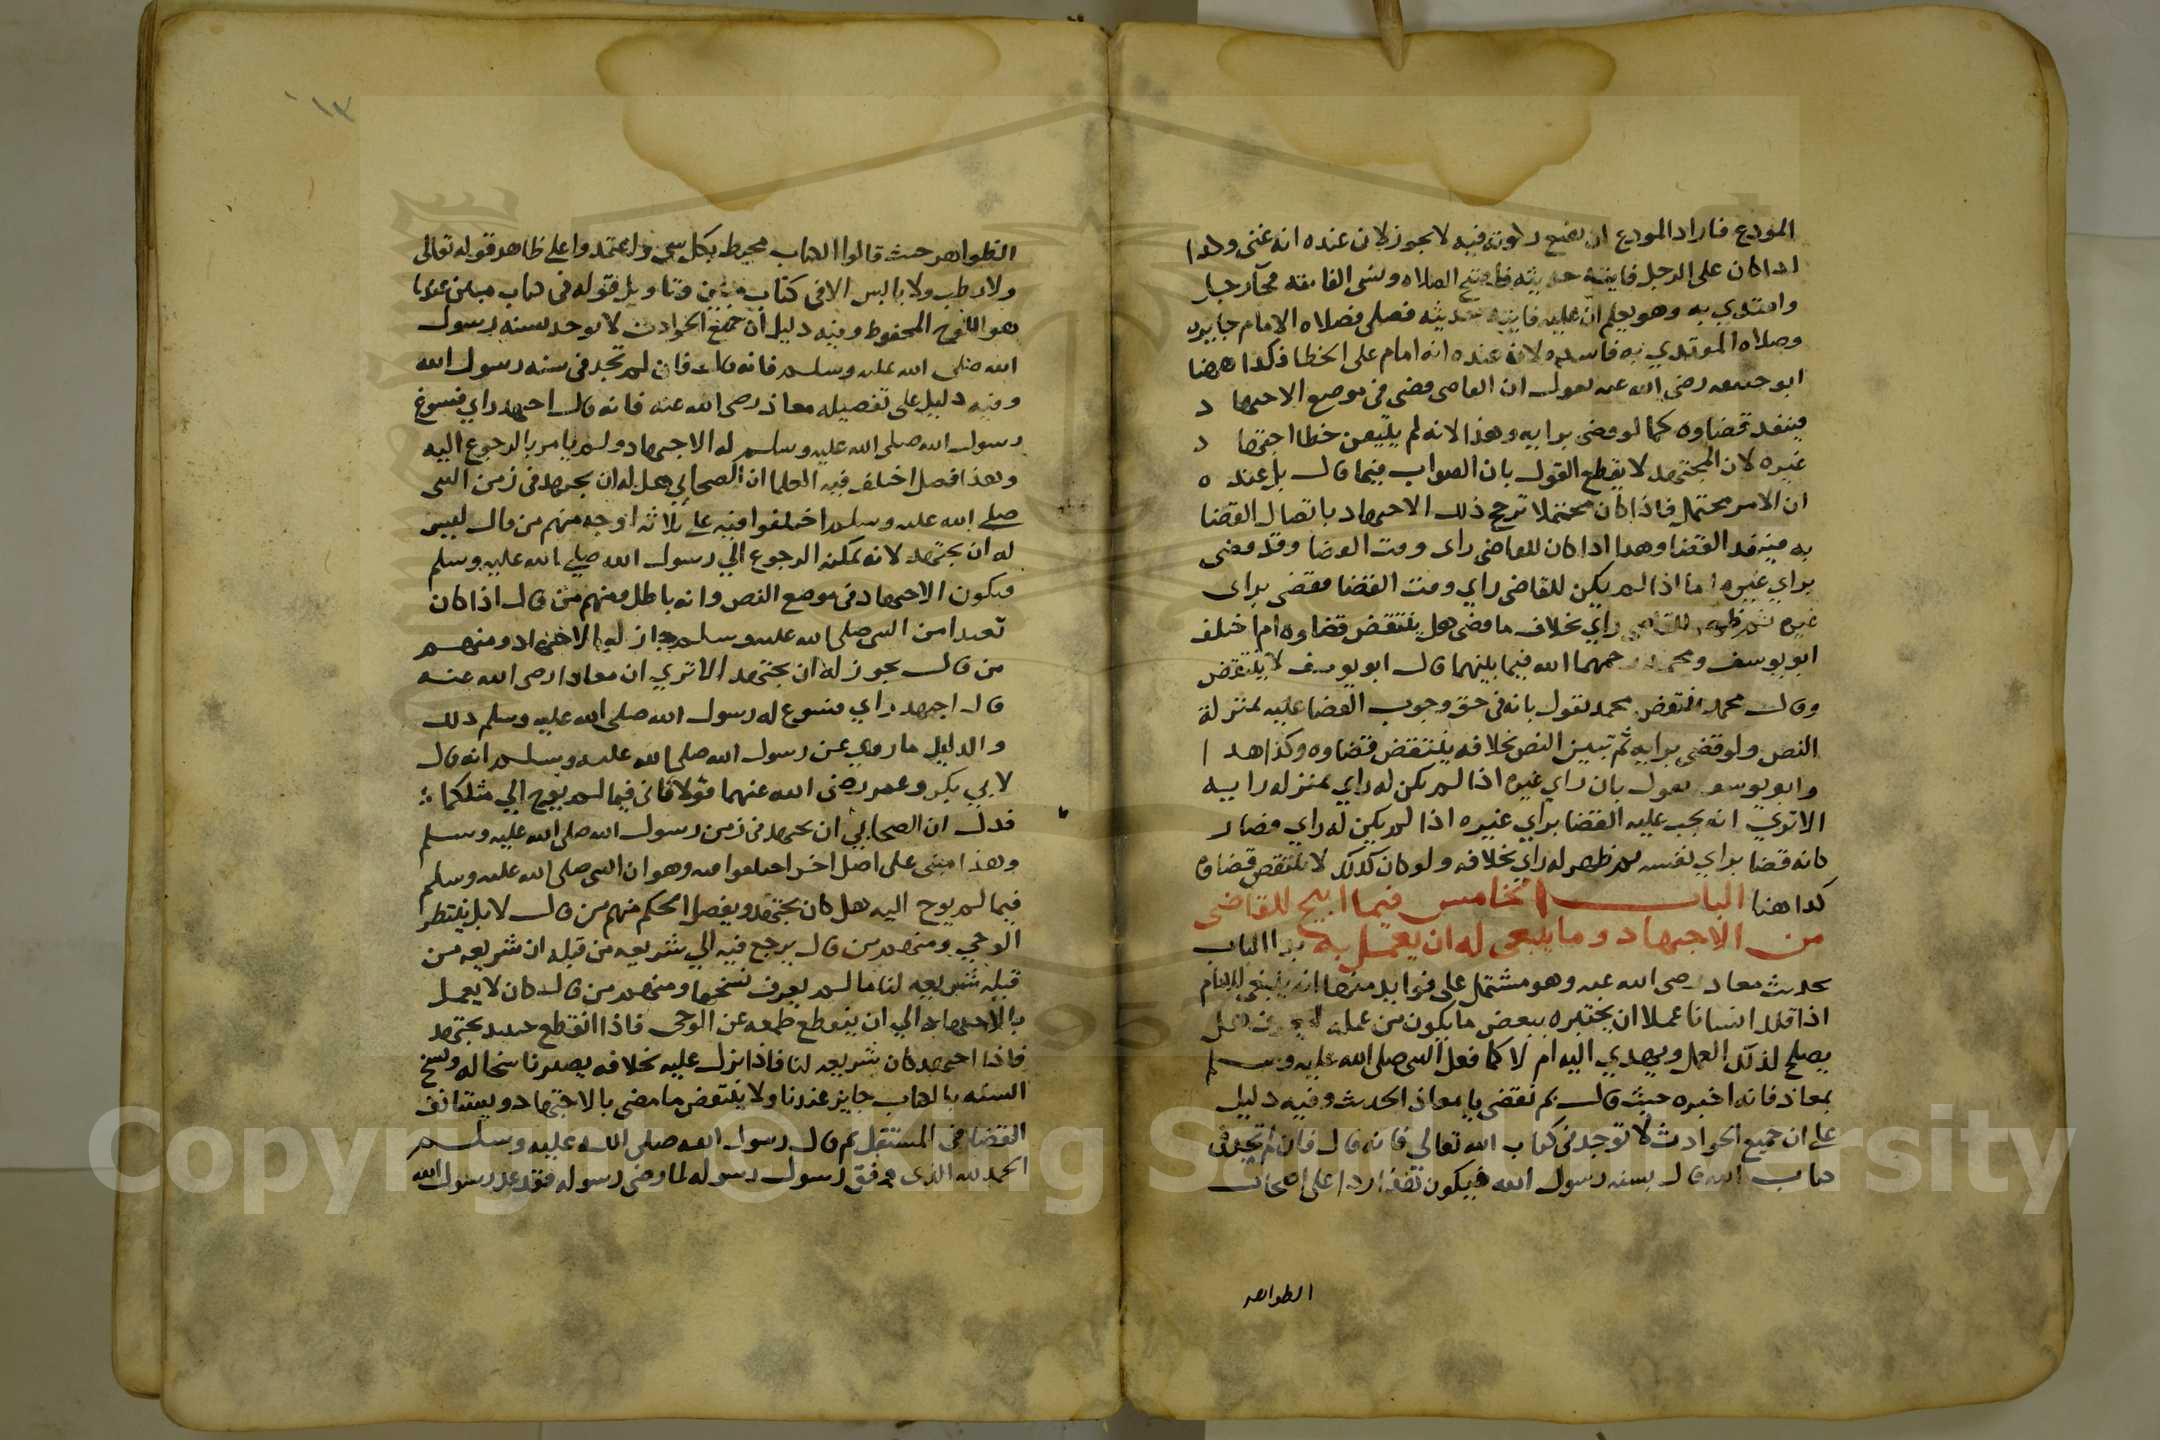 المودع فاراد المودع ان يمنع دعوته فيه لا يجوز لان عنده انه غني وهذا
اذا كان على الرجل فايته حديثه فافتتح الصلاه ونسي الفايته فجآ رجل
واقتدي به وهو يعلم ان عليه فايته حديثه فصلى فصلاه الامام جايزه
وصلاه المقتدي به فاسده لان عنده انه امام على الخطا فكذا ههنا
ابو حنيفه رضي الله عنه يقول ان القاضي قضى في موضع الاجتهاد
فينفد قضاوه كما لو قضى برايه وهذا لانه لم يتيقن خطا اجتهاد
غيره لان المجتهد لا يقطع القول بان الصواب فيما قال بل عنده
ان الامر محتمل فاذا كان محتملا ترجح ذلك الاجتهاد باتصال القضا
به فينفد القضا وهذا اذا كان للقاضي راى وقت القضا وقد قضى
براي غيره اما اذا لم يكن للقاضي راي وقت القضا فقضى براى
غيره ثم ظهر للقاضي راي بخلاف ما قضى هل ينتقض قضاوه ام اختلف
ابو يوسف ومحمد رحمهما الله فيما بينهما قال ابو يوسف لا ينتقض
وقال محمد انتقض محمد يقول بانه في حق وجوب القضا عليه بمنزلة
النص ولو قضى برايه ثم تبين النص بخلافه ينتقض قضاوه وكذا هذا
وابو يوسف يقول بان راي غيره اذا لم يكن له راي بمنزله رايه
الا تري انه يجب عليه القضا براي غيره اذا لم يكن له راي فصار
كانه قضا براي نفسه ثم ظهر له راي بخلافه ولو كان كذلك لا ينتقض قضاوه
كذا هنا الباب الخامس فيما ابيح للقاضي
من الاجتهاد وما ينبغي له ان يعمل به بدا الباب
بحديث معاد رضي الله عنه وهو مشتمل على فوايد منها انه ينبغي للامام
اذا قلد انسانا عملا ان يختبره ببعض ما يكون من عمله ليعرف هل
يصلح لذلك العمل ويهدي اليه ام لا كما فعل النبي صلى الله عليه وسلم
بمعاذ فانه اخبره حيث قال بم تقضي يا معاذ الحديث وفيه دليل
على ان جميع الحوادث لا توجد في كتاب الله تعالى فانه قال فان لم تجد في
كتاب الله قال بسنه رسول الله فيكون هذا ردا على اصحاب
الظواهر
الظواهر حيث قالوا الكتاب محيط بكل شي واعتمدوا على ظاهر قوله تعالى
ولا رطب ولا يابس الا في كتاب مبين وتاويل قوله في كتاب مبين عندنا
هو اللوح المحفوظ وفيه دليل ان جميع الحوادث لا توجد بسنه رسول
الله صلى الله عليه وسلم فانه قال فان لم تجد في سنه رسول الله
وفيه دليل على تفصيله معاذ رضي الله عنه فانه قال اجتهد راي فسوغ
رسول الله صلى الله عليه وسلم له الاجتهاد ولم يامر بالرجوع اليه
وهذا فصل اختلف فيه العلما ان الصحابي هل له ان يجتهد في زمن النبي
صلى الله عليه وسلم اختلفوا فيه على ثلاثه اوجه منهم من قال ليس
له ان يجتهد لانه يمكنه الرجوع الي رسول الله صلى الله عليه وسلم
فيكون الاجتهاد في موضع النص وانه باطل ومنهم من قال اذا كان
بعيدا من النبي صلى الله عليه وسلم جاز له الاجتهاد ومنهم
من قال يجوز له ان يجتهد الا تري ان معاذا رضي الله عنه
قال اجتهد راي فسوغ له رسول الله صلى الله عليه وسلم ذلك
والدليل ما روي عن رسول الله صلى الله عليه وسلم انه قال
لابي بكر وعمر رضي الله عنهما قولا فاني فيما لم يوح الي مثلكما
فدل ان الصحابي ان يجتهد في زمن رسول الله صلى الله عليه وسلم
وهذا مبنى على اصل اخر اختلفوا فيه وهو ان النبي صلى الله عليه وسلم
فيما لم يوح اليه هل كان يجتهد ويفصل الحكم منهم من قال لا بل ينتظر
الوحي ومنهم من قال يرجع فيه الي شريعه من قبله لان شريعه من
قبله شريعه لنا ما لم يعرف نسخها ومنهم من قال كان لا يعمل
بالاجتهاد الي ان ينقطع طمعه عن الوحي فاذا انقطع حينيد يجتهد
فاذا اجتهد كان شريعه لنا فاذا نزل عليه بخلافه يصير ناسخا له ونسخ
السنه بالكتاب جايز عندنا ولا ينتقض ما مضى بالاجتهاد ويستانف
القضا في المستقبل ثم قال رسول الله صلى الله عليه وسلم
الحمد لله الذي وفق رسول رسوله لما رضي رسوله فقد عد رسول الله